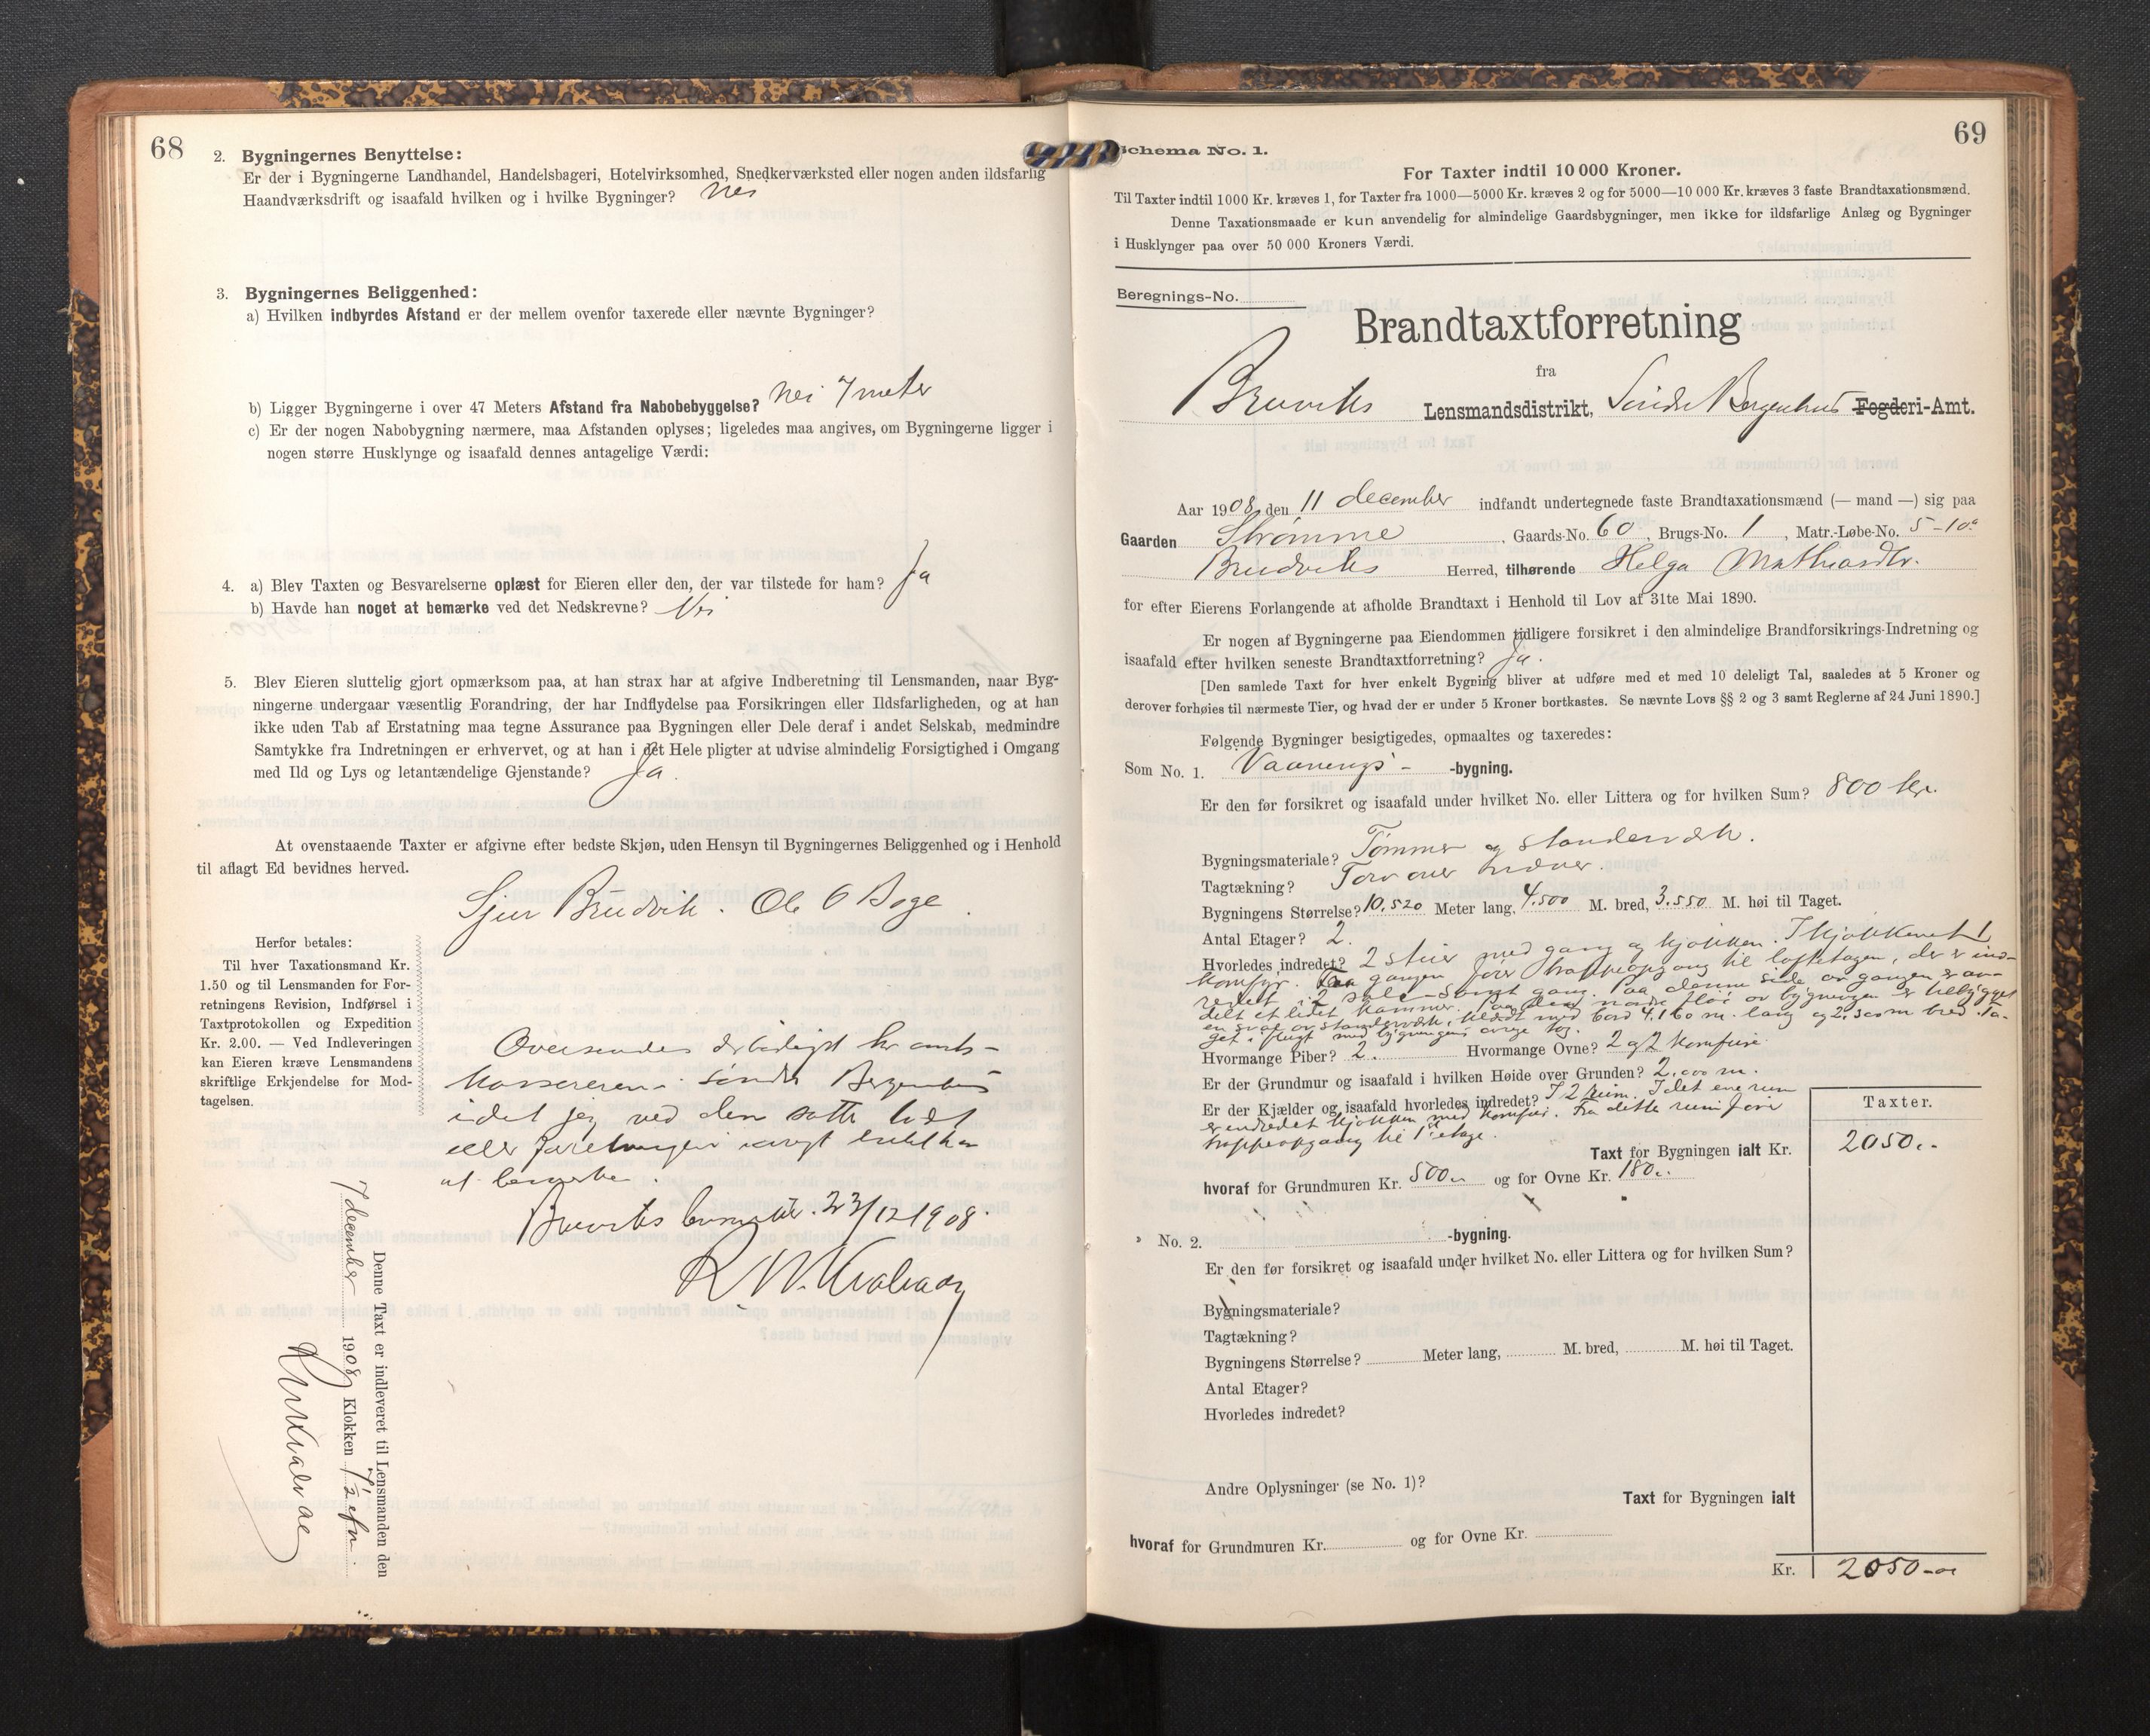 68
2. Bygningernes Benyttelse:
Er der i Bygningerne Landhandel, Handelsbageri, Hotelvirksomhed, Snedkerværksted eller nogen anden ildsfarlig
Haandværksdrift og isaafald hvilken og i hvilke Bygninger? Nei
3. Bygningernes Beliggenhed:
a) Hvilken indbyrdes Afstand er der mellem ovenfor taxerede eller nævnte Bygninger?
b) Ligger Bygningerne i over 47 Meters Afstand fra Nabobebyggelse? Nei 7 meter
c) Er der nogen Nabobygning nærmere, maa Afstanden oplyses; ligeledes maa angives, om Bygningerne ligger i
nogen større Husklynge og isaafald dennes antagelige Værdi:
4. a) Blev Taxten og Besvarelserne oplæst for Eieren eller den, der var tilstede for ham? Ja
b) Havde han noget at bemærke ved det Nedskrevne? Nei
5. Blev Eieren sluttelig gjort opmærksom paa, at han strax har at afgive Indberetning til Lensmanden, naar Byg-
ningerne undergaar væsentlig Forandring, der har Indflydelse paa Forsikringen eller Ildsfarligheden, og at han
ikke uden Tab af Erstatning maa tegne Assurance paa Bygningen eller Dele deraf i andet Selskab, medmindre
Samtykke fra Indretningen er erhvervet, og at han i det Hele pligter at udvise almindelig Forsigtighed i Omgang
med Ild og Lys og letantændelige Gjenstande? Ja.
At ovenstaaende Taxter er afgivne efter bedste Skjøn, uden Hensyn til Bygningernes Beliggenhed og i Henhold
til aflagt Ed bevidnes herved.
Sjur Bruvik. Ole O Boge.
Herfor betales:
Til hver Taxationsmand Kr.
1.50 og til Lensmanden for For-
retningens Revision, Indførsel i
Taxtprotokollen og Expedition
Kr. 2.00. — Ved Indleveringen
kan Eieren kræve Lensmandens
skriftlige Erkjendelse for Mod-
tagelsen.
Oversendes ærbødigst hr amts-
kassereren i søndre Bergenhus
idet jeg ved den satte taxt
eller forretningen iøvrigt intet har
at bemerke.
Bruviks 23/12 1908.
Denne Taxt er indleveret til Lensmanden den
7 december 1908 Klokken 7½ efm.
69
Schema No. 1.
For Taxter indtil 10 000 Kroner.
Til Taxter indtil 1000 Kr. kræves 1, for Taxter fra 1000—5000 Kr. kræves 2 og for 5000—10 000 Kr. kræves 3 faste Brandtaxationsmænd.
Denne Taxationsmaade er kun anvendelig for almindelige Gaardsbygninger, men ikke for ildsfarlige Anlæg og Bygninger
i Husklynger paa over 50 000 Kroners Værdi.
Beregnings-No.
Brandtaxtforretning
fra
Bruviks Lensmandsdistrikt, Søndre Bergenhus Fogderi-Amt.
Aar 1908 den 11 december indfandt undertegnede faste Brandtaxationsmænd (— mand —) sig paa
Gaarden Strømme, Gaards-No. 60, Brugs-No. 1, Matr.-Løbe-No. 5-10a
Bruviks Herred, tilhørende Helga Mathiasdtr.
for efter Eierens Forlangende at afholde Brandtaxt i Henhold til Lov af 31te Mai 1890.
Er nogen af Bygningerne paa Eiendommen tidligere forsikret i den almindelige Brandforsikrings-Indretning og
isaafald efter hvilken seneste Brandtaxtforretning? Ja.
[Den samlede Taxt for hver enkelt Bygning bliver at udføre med et med 10 deleligt Tal, saaledes at 5 Kroner og
derover forhøies til nærmeste Tier, og hvad der er under 5 Kroner bortkastes. Se nævnte Lovs §§ 2 og 3 samt Reglerne af 24 Juni 1890.]
Følgende Bygninger besigtigedes, opmaaltes og taxeredes:
Som No. 1. Vaanings- -bygning.
Er den før forsikret og isaafald under hvilket No. eller Littera og for hvilken Sum? 800 kr.
Bygningsmateriale? Tømmer og standerværk.
Tagtækning? Torv over næver.
Bygningens Størrelse? 10.520 Meter lang, 4.500 M. bred, 3.550 M. høi til Taget.
Antal Etager? 2.
Hvorledes indredet? 2 stuer med gang og kjøkken. I kjøkkenet 1
komfyr. Fra gangen fører trappeopgang til loftetagen, der er ind-
redet i 2 sale samt gang. Paa denne side av gangen er av-
delt et lidet kammer. Paa den nordre fløi av bygningen er tilbygget
en sval av standerværk, klædt med bord 4.160 m. lang og 2.300 m bred. Ta-
get i flugt med bygningens øvrige tag.
Hvormange Piber? 2. Hvormange Ovne? 2 og 2 komfure.
Er der Grundmur og isaafald i hvilken Høide over Grunden? 2.000 m.
Er der Kjælder og isaafald hvorledes indredet? I 2 rum. I det ene rum
er indredet kjøkken med komfur. Fra dette rum fører
trappeopgang til 1ste etage.
Taxter.
Taxt for Bygningen ialt Kr. 2050.-
hvoraf for Grundmuren Kr. 500.- og for Ovne Kr. 180.-
No. 2. -bygning.
Er den før forsikret og isaafald under hvilket No. eller Littera og for hvilken Sum?
Bygningsmateriale?
Tagtækning?
Bygningens Størrelse? Meter lang, M. bred, M. høi til Taget.
Antal Etager?
Hvorledes indredet?
Andre Oplysninger (se No. 1)?
Taxt for Bygningen ialt
hvoraf for Grundmuren Kr. og for Ovne Kr.
Kr. 2050-00